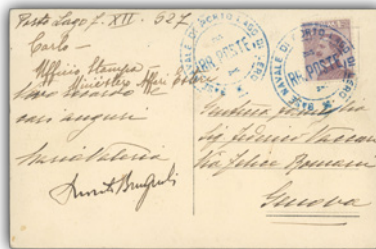 Porto Lago 7. XII. 527
Carlo –
Ufficio Stampa –
Ministero Affari Esteri
caro ricordo e
cari auguri
Maria Valeria
BASE NAVALE DI PORTO LAGO (EGEO)
RR. POSTE
BASE NAVALE DI PORTO LAGO (EGEO)
RR. POSTE
famiglia
Sig. Federico Vaccari
Via Felice Romani
Genova